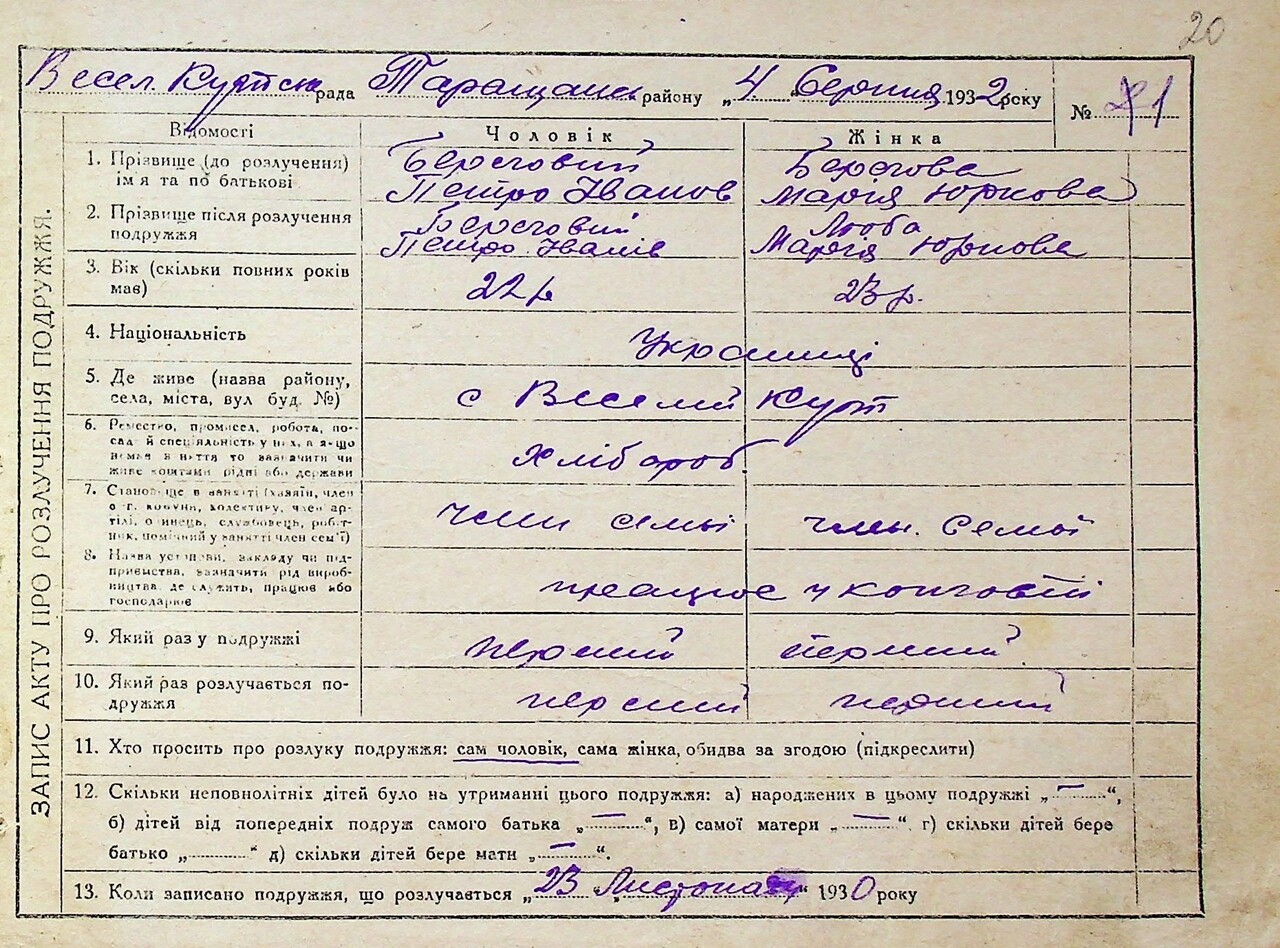 20
Весел. Кутська рада Таращанс. району „4“ Серпня 1932 року № 1
ЗАПИС АКТУ ПРО РОЗЛУЧЕННЯ ПОДРУЖЖЯ.
Відомості Чоловік Жінка
1. Прізвище (до розлучення) Береговий Берегова
ім'я та по батькові Петро Іванов Марія Юркова
2. Прізвище після розлучення Береговий Люба
подружжя Петро Іванів Марія Юркова
3. Вік (скільки повних років 22 р 23 р.
мав)
4. Національність Українці
5. Де живе (назва району,
села, міста, вул буд. №) с Веселий Кут
6. Ремество, промисел, робота, по-
сада й спеціяльність у них, а якщо
немає заняття то зазначити чи Хлібороб
живе коштами рідні або держави
7. Становище в занятті (хазяїн, член
с.-г. комуни, колективу, член ар- член семьі член. Семьі
тілі, одинець, службовець, робіт-
ник, помічний у занятті член сем'ї)
8. Назва установи, закладу чи під-
приємства, зазначити рід вироб-
ництва, де служить, працює або працює у колгоспі
господарює
9. Який раз у подружжі перший перший
10. Який раз розлучається по- перший перший
дружжя
11. Хто просить про розлуку подружжя: сам чоловік, сама жінка, обидва за згодою (підкреслити)
12. Скільки неповнолітніх дітей було на утриманні цього подружжя: а) народжених в цьому подружжі „—“,
б) дітей від попередніх подруж самого батька „—“, в) самої матери „—“. г) скільки дітей бере
батько „........“ д) скільки дітей бере мати „—“.
13. Коли записано подружжя, що розлучається „23“ Листопаду 1930 року